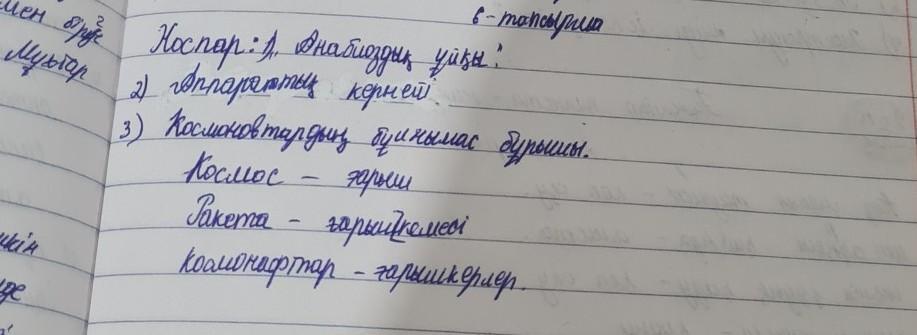 мен бірге
Мұхтар
6-тапсырма
Жоспар: 1) Анабиоздық ұйқы
2) Аппараттың кернеті
3) Космоновтардың бұлнымас бұрышы.
Космос – ғарыш
Ракета – ғарыш кемесі
космонафттар – ғарышкерлер.